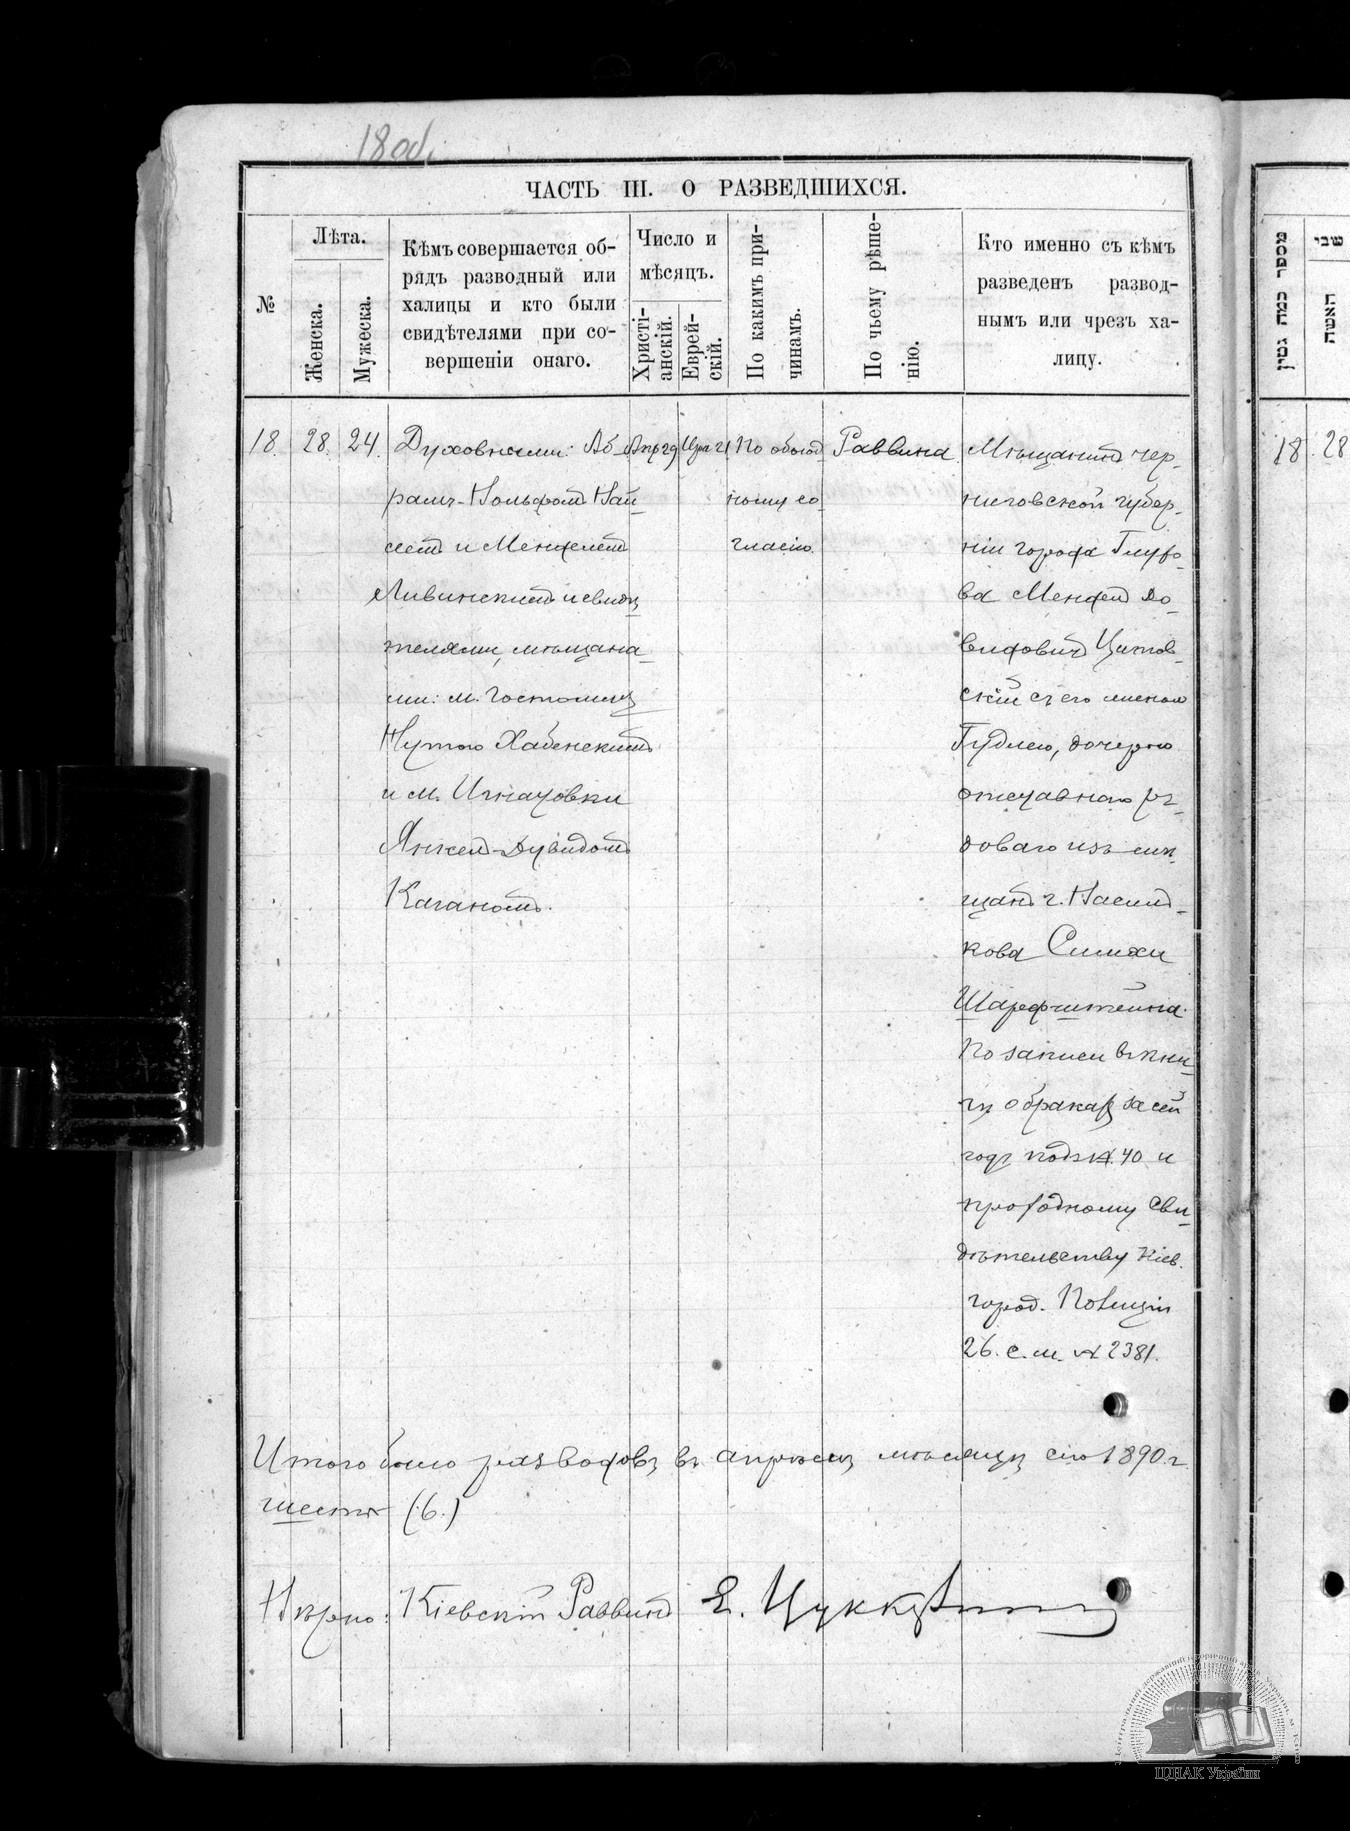 18 об.
ЧАСТЬ III. О РАЗВЕДШИХСЯ.
№
Лѣта.
Женска.
Мужеска.
Кѣмъ совершается об-
рядъ разводный или
халицы и кто были
свидѣтелями при со-
вершеніи онаго.
Число и
мѣсяцъ.
Христі-
анскій.
Еврей-
скій.
По какимъ при-
чинамъ.
По чьему рѣше-
нію.
Кто именно съ кѣмъ
разведенъ развод-
нымъ или чрезъ ха-
лицу.
18. 28. 24.
Духовными: Аб-
рамъ-Вольфомъ Вай-
семъ и Менделемъ
Ливинскимъ и свидѣ
телями, мѣщана-
ми: м. Гостомля
Нутою Хабенскимъ
и м. Игнатовки
Янкел-Дувидомъ
Каганомъ.
Апр 29
Ияр 21
По обоюд
ному со-
гласію.
Раввина
Мѣщанинъ Чер-
ниговской губер-
ніи города Глухо-
ва Мендел До-
видовичъ Цитов-
скій съ его женою
Гудлею, дочерью
отставного ря-
доваго изъ мѣ-
щанъ г. Василь-
кова Симхи
Шарфштейна.
По записи въ кни-
гѣ о бракахъ за сей
годъ подъ № 40 и
проходному сви-
дѣтельству Кіев.
город. Полиціи
26. с. м. № 2381.
Итого было разводовъ въ апрѣлѣ мѣсяцѣ сего 1890 г.
шесть (6.)
Вѣрно: Кіевскій Раввинъ Е. Цуккерманъ
מספר כמה גטין
שני
האשה
18 28
ЦДІАК України